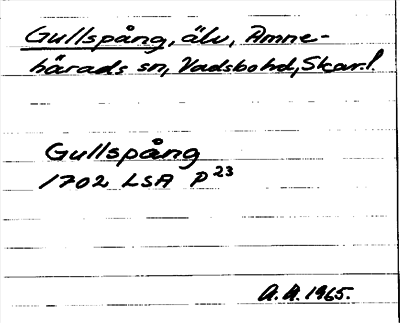 Gullspång, älv, Amne-
härads sn, Vadsbohd, Skar.l.
Gullspång
1702 LSA P 23
A.A. 1965.